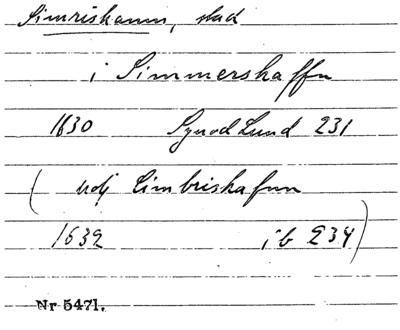 Simrishamn, stad
i Simmershaffn
1630 Synod Lund 231
( udj Cimbrishafnn
1632 ib 234 )
Nr 5471.